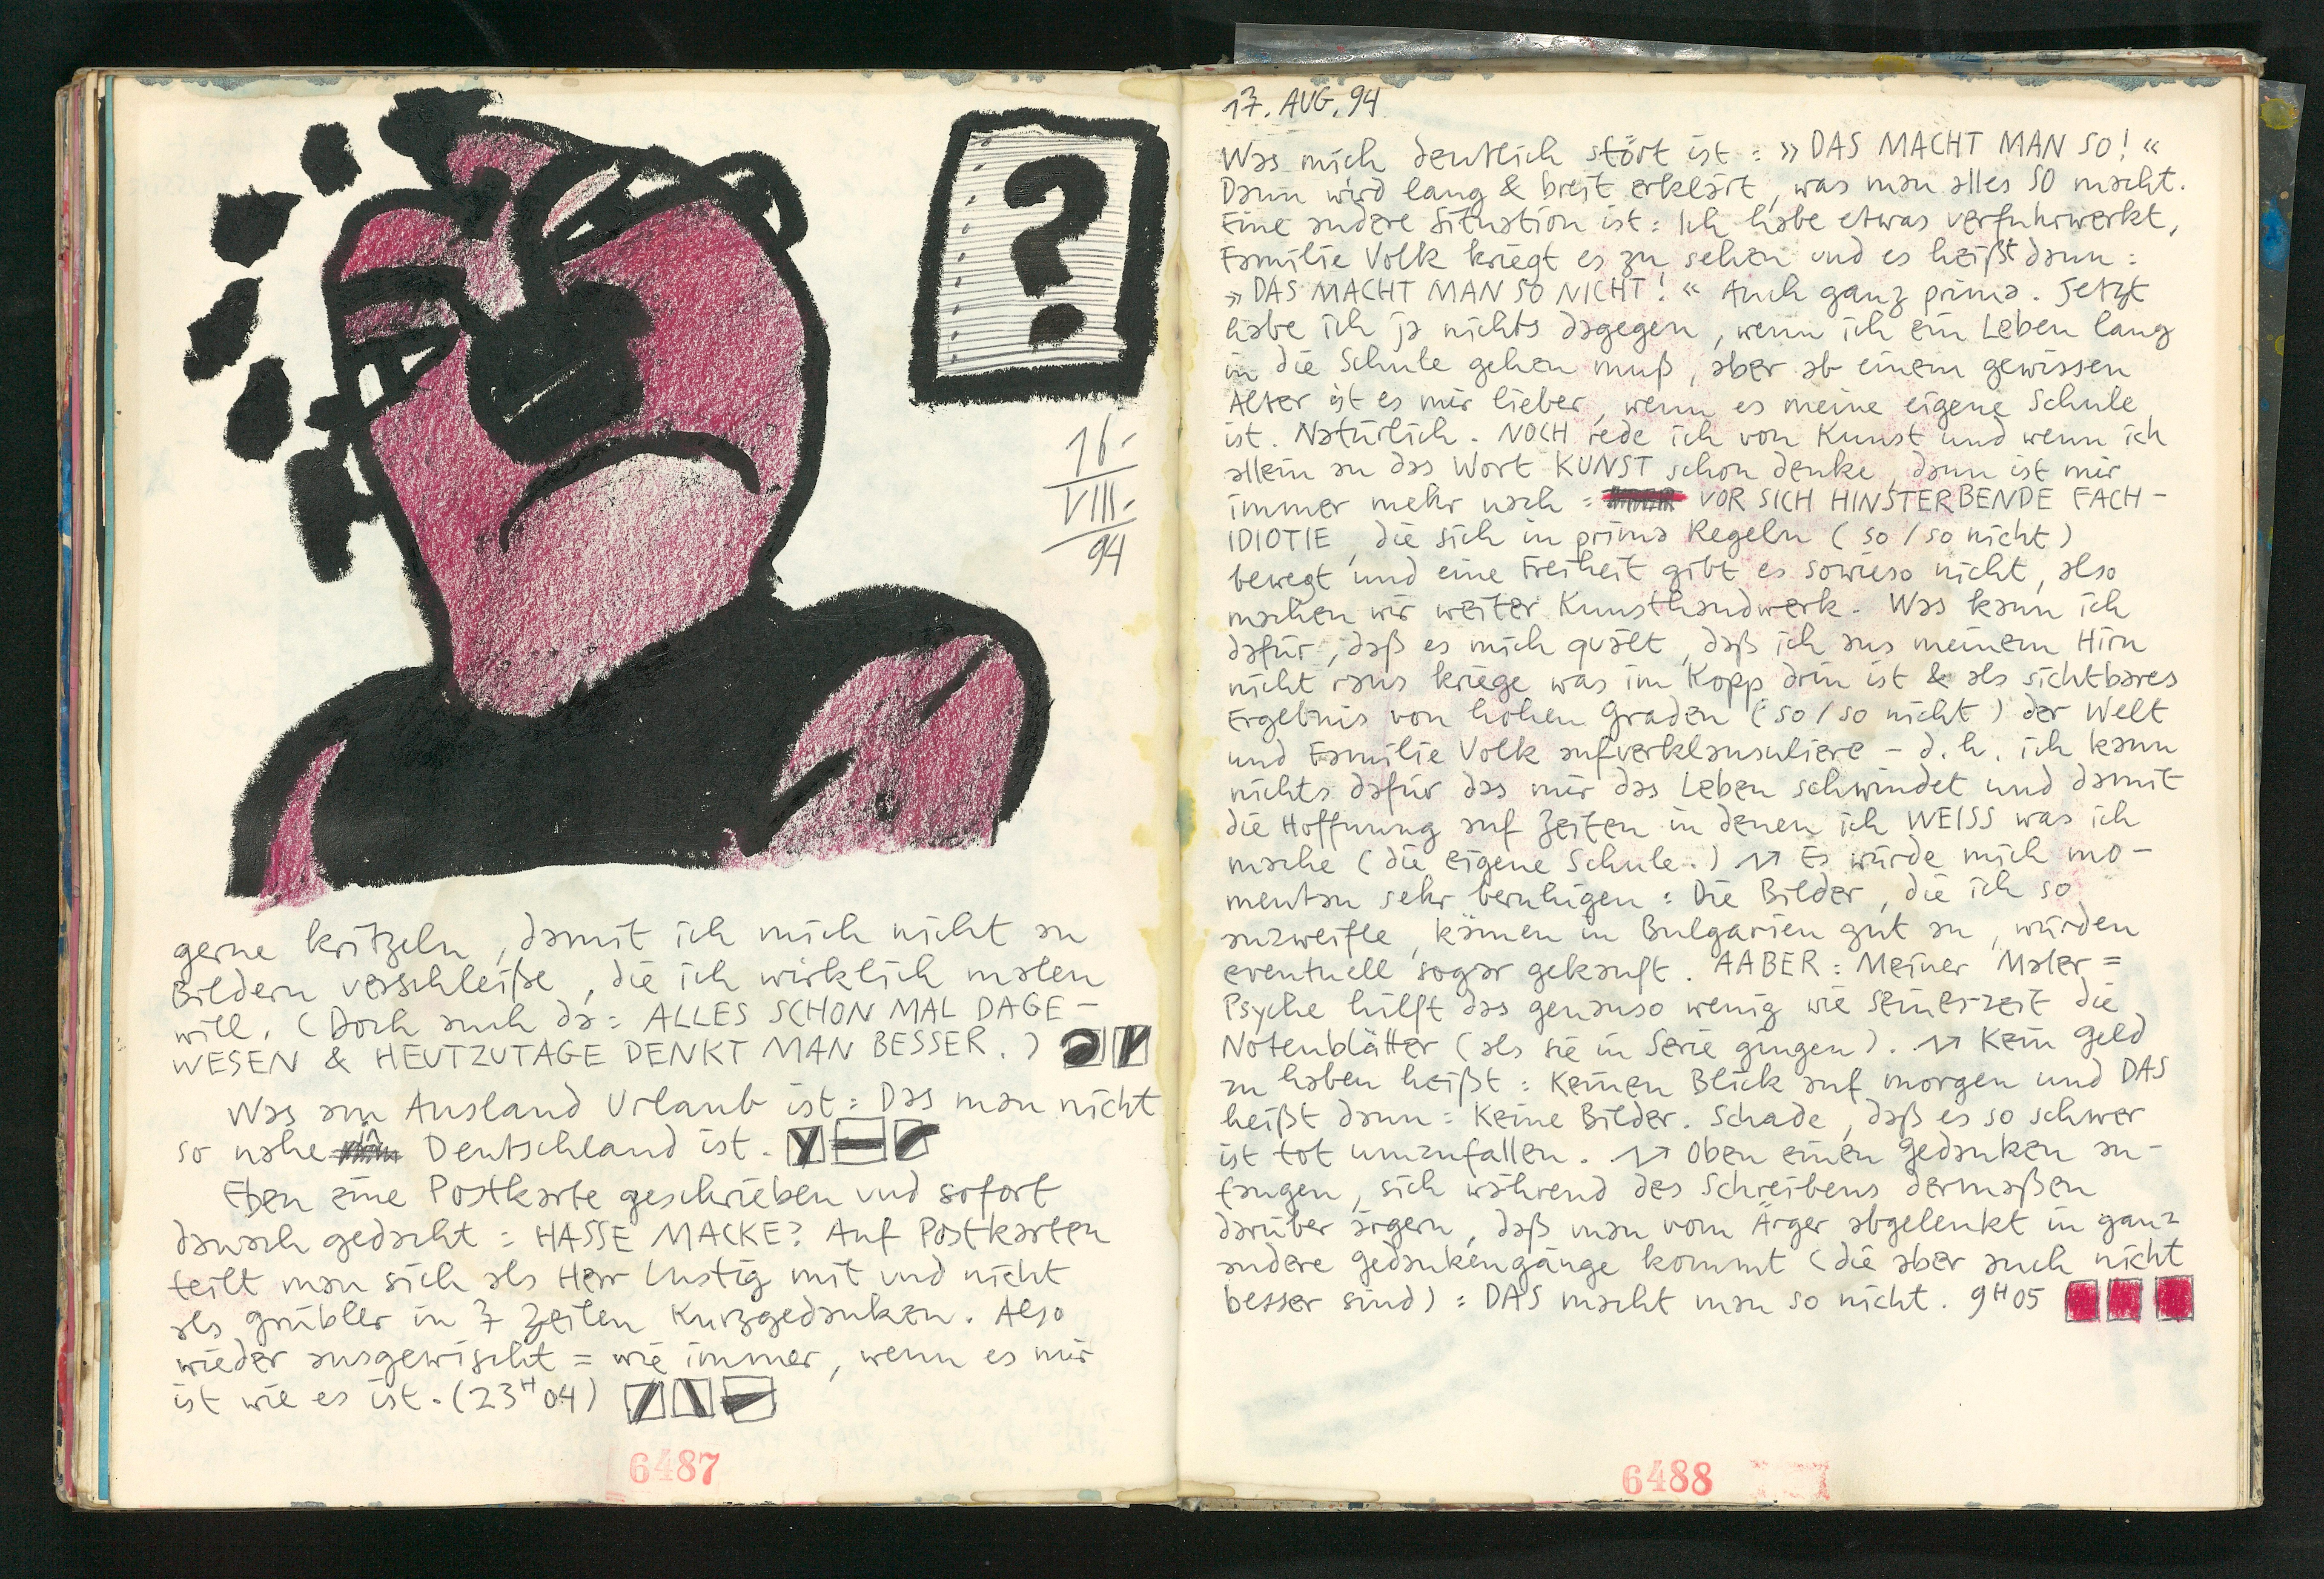 ?
16.
VIII.
94
gerne kritzeln, damit ich mich nicht an
Bildern verschleiße, die ich wirklich malen
will. (Doch auch da: ALLES SCHON MAL DAGE-
WESEN & HEUTZUTAGE DENKT MAN BESSER.)
Was am Ausland Urlaub ist: Das man nicht
so nahe in Deutschland ist.
Eben eine Postkarte geschrieben und sofort
danach gedacht: HASSE MACKE? Auf Postkarten
teilt man sich als Herr Lustig mit und nicht
als Grübler in 7 Zeilen Kurzgedanken. Also
wieder ausgewischt = wie immer, wenn es mir
ist wie es ist. (23H04)
6487
17. AUG. 94
Was mich deutlich stört ist: »DAS MACHT MAN SO!«
Dann wird lang & breit erklärt, was man alles SO macht.
Eine andere Situation ist: Ich habe etwas verfuhrwerkt,
Familie Volk kriegt es zu sehen und es heißt dann:
»DAS MACHT MAN SO NICHT!« Auch ganz prima. Jetzt
habe ich ja nichts dagegen, wenn ich ein Leben lang
in die Schule gehen muß, aber ab einem gewissen
Alter ist es mir lieber, wenn es meine eigene Schule
ist. Natürlich. NOCH rede ich von Kunst und wenn ich
allein an das Wort KUNST schon denke, dann ist mir
immer mehr nach: VOR SICH HINSTERBENDE FACH-
IDIOTIE, die sich in prima Regeln (so/so nicht)
bewegt und eine Freiheit gibt es sowieso nicht, also
machen wir weiter Kunsthandwerk. Was kann ich
dafür, daß es mich quält, daß ich aus meinem Hirn
nicht raus kriege was im Kopp drin ist & als sichtbares
Ergebnis von hohen Graden (so/so nicht) der Welt
und Familie Volk aufverklausuliere – d.h. ich kann
nichts dafür das mir das Leben schwindet und damit
die Hoffnung auf Zeiten in denen ich WEISS was ich
mache (die eigene Schule.) Es würde mich mo-
mentan sehr beruhigen: Die Bilder, die ich so
anzweifle, kämen in Bulgarien gut an, würden
eventuell sogar gekauft. AABER: Meiner Maler=
Psyche hilft das genauso wenig wie seinerzeit die
Notenblätter (als sie in Serie gingen). Kein Geld
zu haben heißt: Keinen Blick auf morgen und DAS
heißt dann: Keine Bilder. Schade, daß es so schwer
ist tot umzufallen. Oben einen Gedanken an-
fangen, sich während des Schreibens dermaßen
darüber ärgern, daß man vom Ärger abgelenkt in ganz
andere Gedankengänge kommt (die aber auch nicht
besser sind): DAS macht man so nicht. 9H05
6488